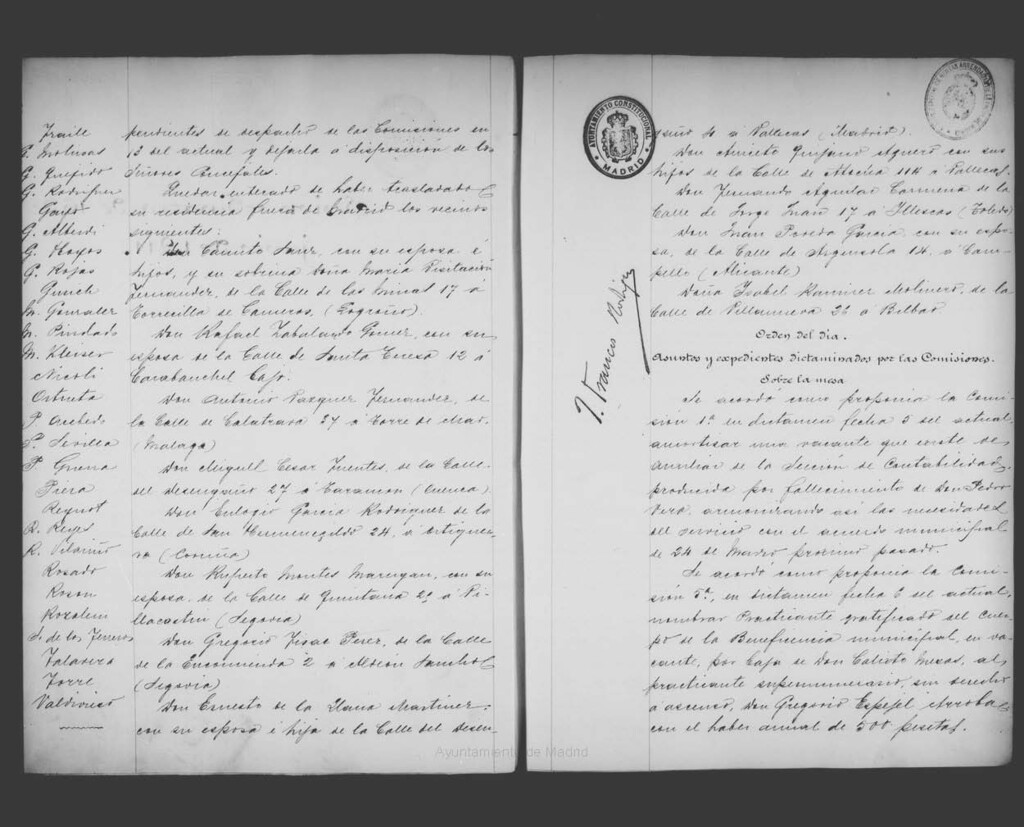 Fraile
G. Molinas
G. Quejido
G. Rodriguez
Gayo
G. Alberdi
G. Hoyos
G. Rojas
Gurich
M. Gonzalez
M. Pindado
M. Kleiser
Nicoli
Ortueta
P. Acebedo
P. Sevilla
P. Guerra
Piera
Reynot
R. Reyes
R. Vilariño
Rosado
Roson
Rozalem
S. de los Terreros
Talavera
Torre
Valdivieso
pendientes de despacho de las Comisiones en
13 del actual y dejarla á disposicion de los
Señores Concejales.
Quedar enterado de haber trasladado
su residencia fuera de Madrid los vecinos
siguientes:
Don Cancuto Sanz, con su esposa é
hijos, y su sobrina Doña Maria Visitación
Fernandez, de la Calle de las Minas 17 á
Torrecilla de Cameros, (Logroño).
Don Rafael Zabalando Gomez, con su
esposa de la Calle de Santa Teresa 12 á
Carabanchel Bajo.
Don Antonio Vazquez Fernandez, de
la Calle de Calatrava 27 á Torre de Mar.
(Malaga)
Don Miguel Cesar Fuentes, de la Calle
del Desengaño 27 á Tarancon (Cuenca)
Don Eulogio Garcia Rodriguez de la
Calle de San Hermenegildo 24, á Ortiguei-
ra (Coruña)
Don Ruperto Montes Marugan, con su
esposa, de la Calle de Quintana 20 á Vi-
llacastin (Segovia)
Don Gregorio Perez, de la Calle
de la Encomienda 2 á Sancho
(Segovia)
Don Ernesto de la Llana Martinez
con su esposa é hija de la Calle del Desen-
AYUNTAMIENTO CONSTITUCIONAL
MADRID
gaño 4 á Vallecas (Madrid).
Don Aniceto Quijano Aguero con sus
hijos de la Calle de Atocha 114 á Vallecas.
Don Fernando Aguilar Carmena de la
Calle de Jorge Juan 17 á Illescas (Toledo)
Don Juan Poveda Garcia, con su espo-
sa, de la Calle de Argensola 14, á Cam-
pello (Alicante)
Doña Isabel Ramirez Molinero, de la
Calle de Villanueva 26 á Bilbao
Orden del dia.
Asuntos y expedientes dictaminados por las Comisiones.
Sobre la mesa
Se acordó como proponia la Comi-
sion 1ª en dictamen fecha 5 del actual,
amortizar una vacante que existe de
Auxiliar de la Sección de Contabilidad,
producida por fallecimiento de Don Pedro
Vera, armonizando asi las necesidades
del servicio con el acuerdo municipal
de 24 de Marzo proximo pasado.
Se acordó como proponia la Comi-
sion 5ª, en dictamen fecha 6 del actual,
nombrar Practicante gratificado del Cuer-
po de la Beneficencia municipal, en va-
cante, por baja de Don Calixto Mezas, al
practicante supernumerario, sin derecho
á ascenso, Don Gregorio Espejel
con el haber anual de 500 pesetas.
Francos Rodriguez
Ayuntamiento de Madrid